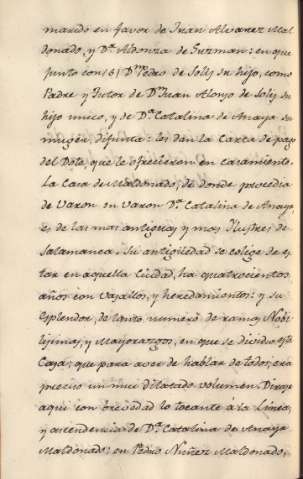 mando en favor de Juan Alvarez Mal
donado, y D.ª Aldonza de Guzman: en que
junto con el D.n Pedro de Solis su hijo, como
Padre y Tutor de D.n Juan Alonso de Solis su
hijo unico, y de D.ª Catalina de Anaya su
muger difunta: les dan la Carta de pago
del Dote, que le ofrecieron en casamiento.
La Casa de Maldonado, de donde procedia
de Varon en Varon D.ª Catalina de Anaya
es de las mas antiguas y mas Ilustres de
Salamanca. Su antiguedad se colige de es
tar en aquella Ciudad, ha quatrocientos
años con Vasallos, y heredamientos: y su
esplendor, de tanto numero de ramas Nobi
lisimas, y Mayorazgos, en que se dividio esta
Casa; que para aver de hablar de todos, era
preciso un mui dilatado volumen. Dirase
aqui con brevedad lo tocante à la Linea,
y ascendencia de D.ª Catalina de Anaya
Maldonado: en Pedro Nuñez Maldonado,